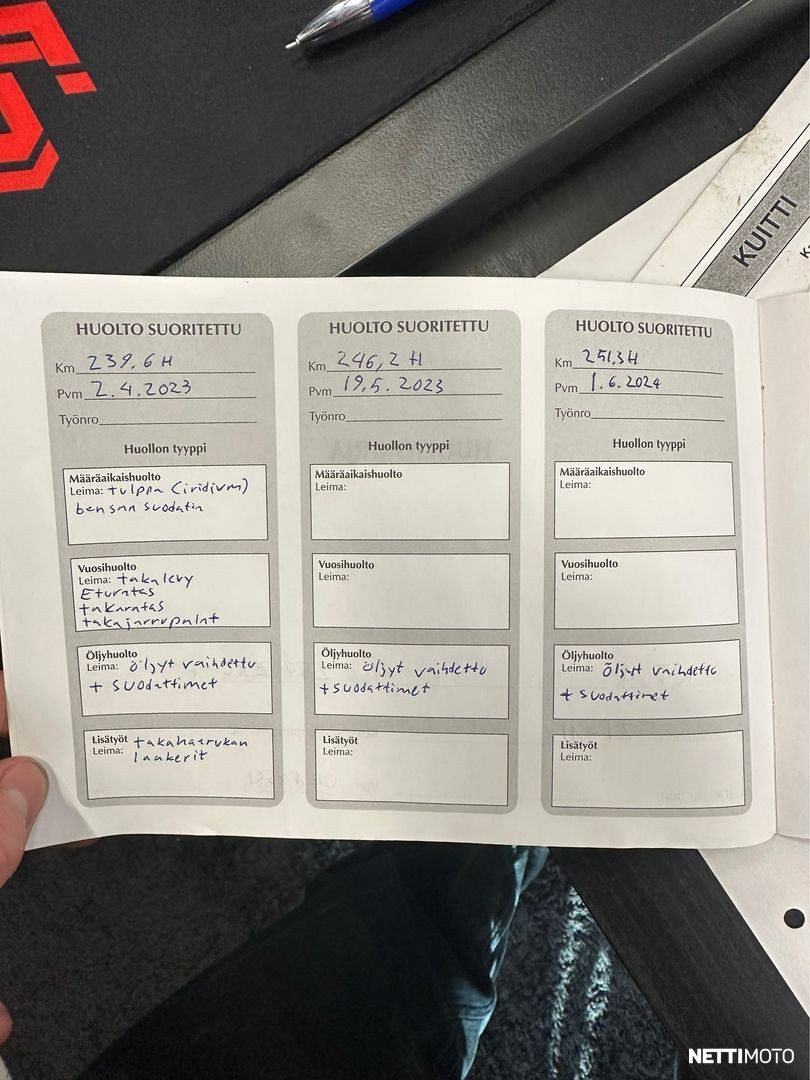 KUITTI
HUOLTO SUORITETTU
Km 239.6 H
Pvm 2.4.2023
Työnro
Huollon tyyppi
Määräaikaishuolto
Leima: tulppa (iridium)
bensan suodatin
Vuosihuolto
Leima: takalevy
Eturatas
takaratas
takajarrupalat
Öljyhuolto
Leima: öljyt vaihdettu
+ suodattimet
Lisätyöt takahaarukan
Leima: laakerit
HUOLTO SUORITETTU
Km 246,2 H
Pvm 19.5.2023
Työnro
Huollon tyyppi
Määräaikaishuolto
Leima:
Vuosihuolto
Leima:
Öljyhuolto
Leima: öljyt vaihdettu
+ suodattimet
Lisätyöt
Leima:
HUOLTO SUORITETTU
Km 251,3 H
Pvm 1.6.2024
Työnro
Huollon tyyppi
Määräaikaishuolto
Leima:
Vuosihuolto
Leima:
Öljyhuolto
Leima: öljyt vaihdettu
+ suodattimet
Lisätyöt
Leima:
NETTIMOTO